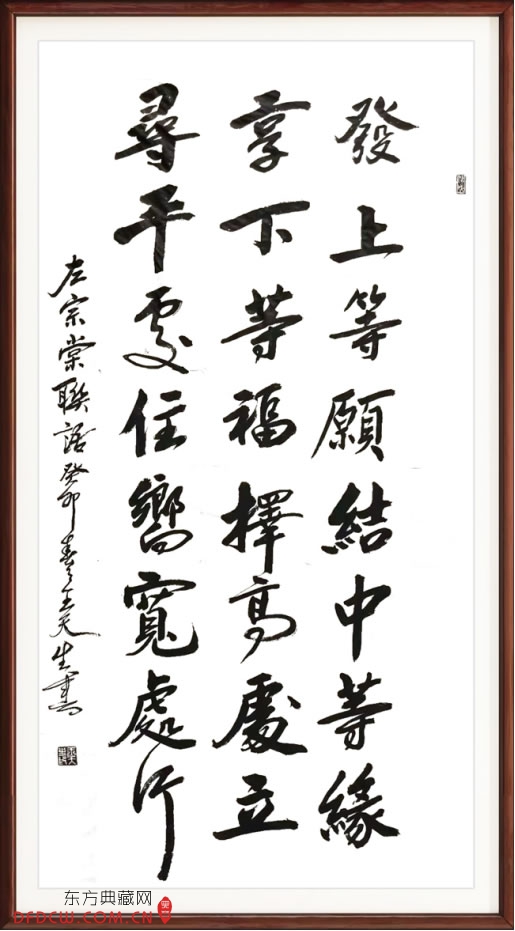 發上等願結中等緣
享下等福擇高處立
尋平處住嚮寬處行
左宗棠聯語癸卯春王天生書
东方典藏网
DFDCW.COM.CN